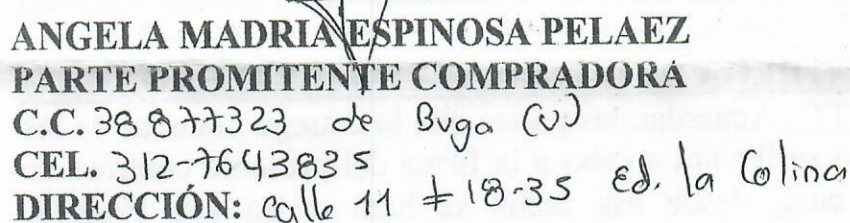 ANGELA MADRIA ESPINOSA PELAEZ
PARTE PROMITENTE COMPRADORA
C.C. 38877323 de Buga (V)
CEL. 312-7643835
DIRECCIÓN: Calle 11 # 18-35 Ed. la Colina